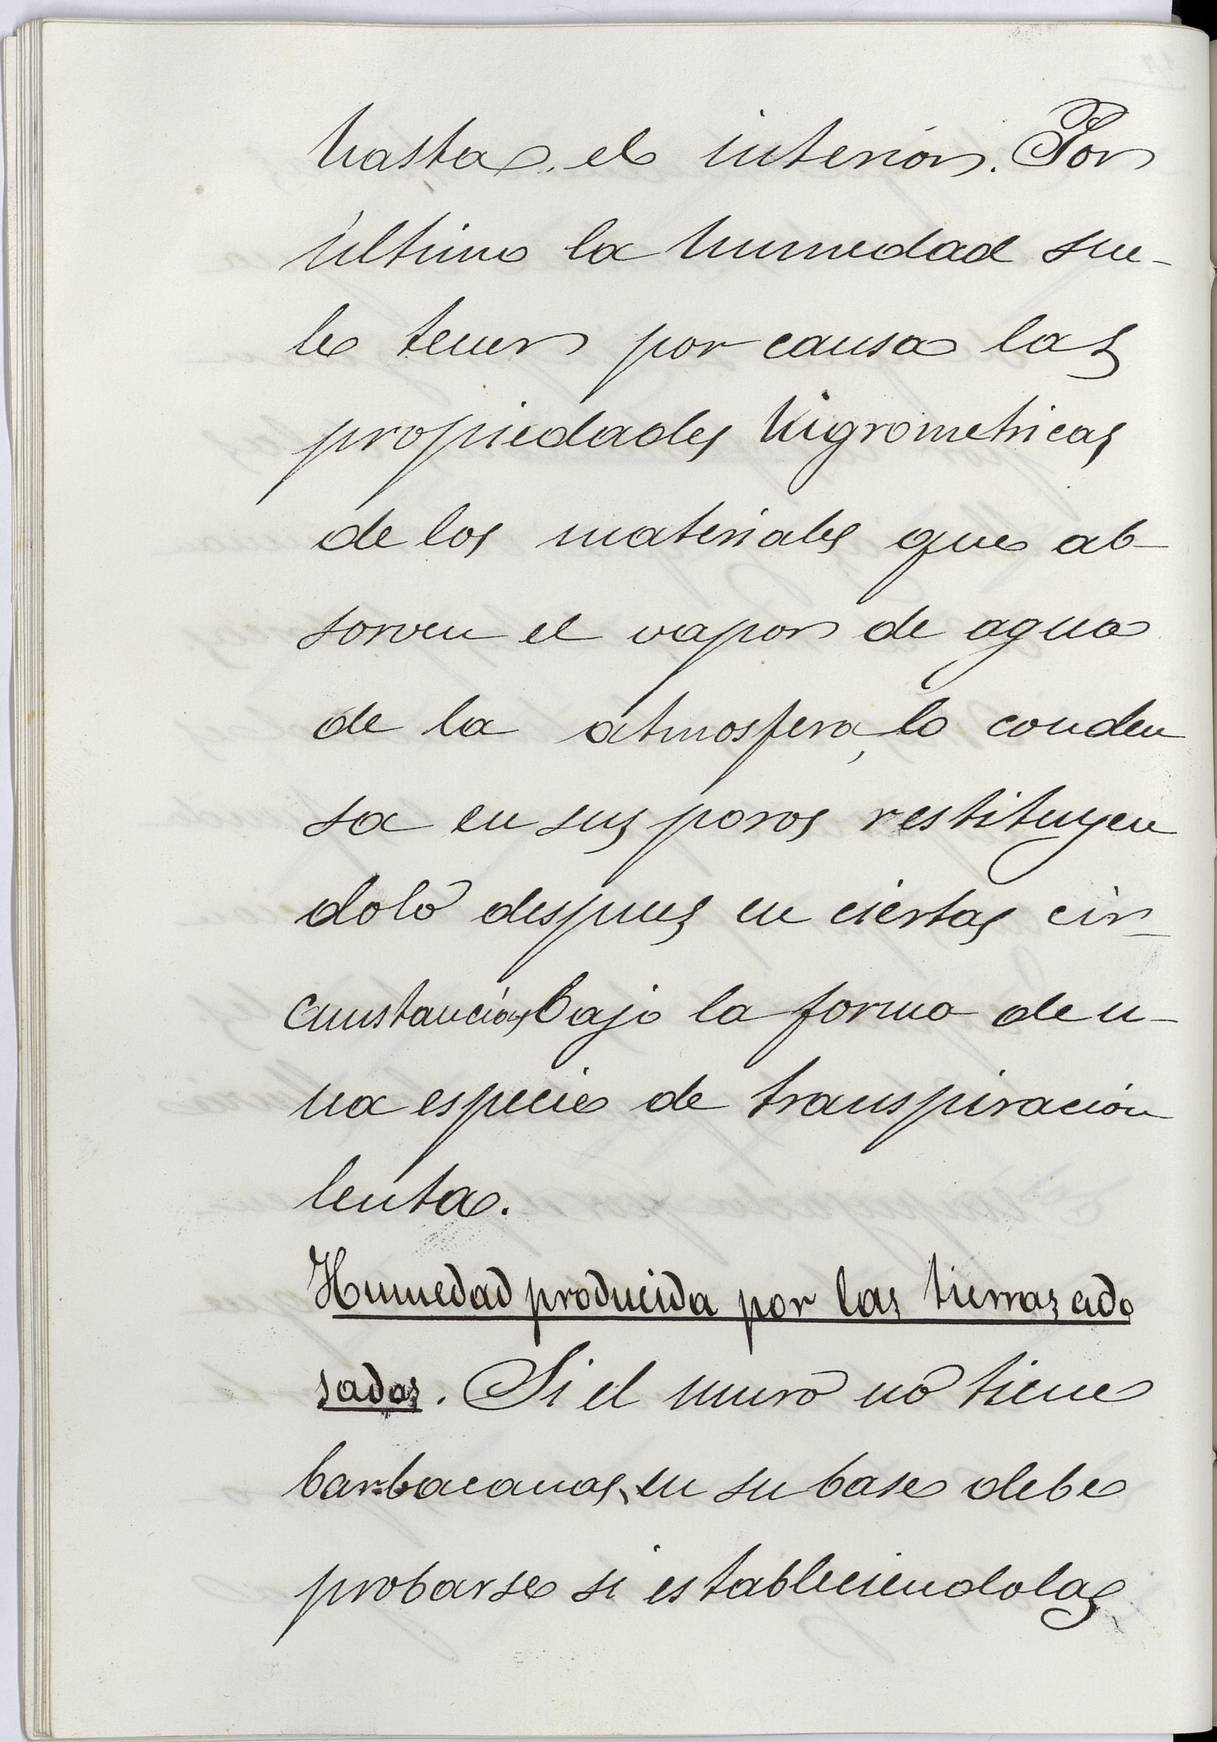 hasta, el interiór. Por
último la humedad sue-
le tener por causa las
propiedades higrometricas
de los materiales que ab-
sorven el vapor de agua
de la atmosfera, lo conden
sa en sus poros restituyen
dolo despues en ciertas cir-
cunstancias bajo la forma de u-
na especie de transpiración
lenta.
Humedad producida por las tierras ado
sadas. Si el muro no tiene
barbacanas, en su base debe
probarse si estableciendolas